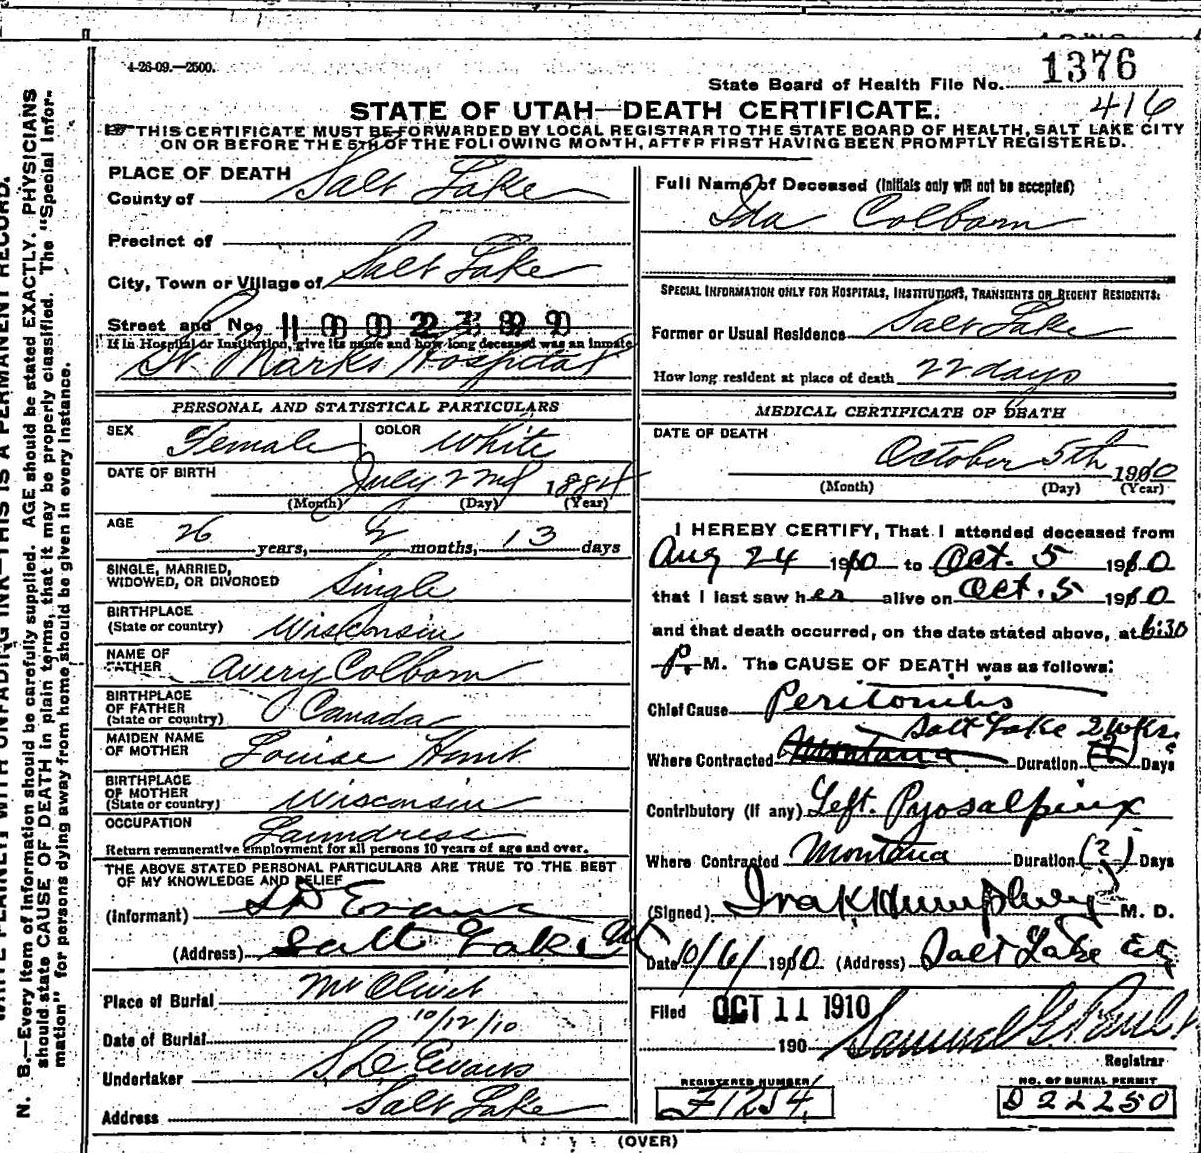 4-26-09.—2500.
State Board of Health File No. 1376
416
STATE OF UTAH—DEATH CERTIFICATE.
THIS CERTIFICATE MUST BE FORWARDED BY LOCAL REGISTRAR TO THE STATE BOARD OF HEALTH, SALT LAKE CITY
ON OR BEFORE THE 5TH OF THE FOLLOWING MONTH, AFTER FIRST HAVING BEEN PROMPTLY REGISTERED.
PLACE OF DEATH
County of Salt Lake
Precinct of
City, Town or Village of Salt Lake
Street and No.
If in Hospital or Institution, give its name and how long deceased was an inmate
St Marks Hospital
PERSONAL AND STATISTICAL PARTICULARS
SEX Female COLOR White
DATE OF BIRTH July 2nd 1884
(Month) (Day) (Year)
AGE 26 years, 2 months, 13 days
SINGLE, MARRIED,
WIDOWED, OR DIVORCED Single
BIRTHPLACE
(State or country) Wisconsin
NAME OF
FATHER Avery Colborn
BIRTHPLACE
OF FATHER
(State or country) Canada
MAIDEN NAME
OF MOTHER Louise Hunt
BIRTHPLACE
OF MOTHER
(State or country) Wisconsin
OCCUPATION Laundress
Return remunerative employment for all persons 10 years of age and over.
THE ABOVE STATED PERSONAL PARTICULARS ARE TRUE TO THE BEST
OF MY KNOWLEDGE AND BELIEF
(Informant) S D Evans
(Address) Salt Lake
Place of Burial Mt Olivet
Date of Burial 10/12/10
Undertaker S D Evans
Address Salt Lake
Full Name of Deceased (Initials only will not be accepted)
Ida Colborn
SPECIAL INFORMATION ONLY FOR HOSPITALS, INSTITUTIONS, TRANSIENTS OR RECENT RESIDENTS:
Former or Usual Residence Salt Lake
How long resident at place of death 22 days
MEDICAL CERTIFICATE OF DEATH
DATE OF DEATH
October 5th 1910
(Month) (Day) (Year)
I HEREBY CERTIFY, That I attended deceased from
Aug 24 1910 to Oct. 5 1910
that I last saw her alive on Oct. 5 1910
and that death occurred, on the date stated above, at 6:30
P. M. The CAUSE OF DEATH was as follows:
Chief Cause Peritonitis
Salt Lake 2 wks.
Where Contracted Montana Duration (?) Days
Contributory (if any) Left. Pyosalpinx
Where Contracted Montana Duration (?) Days
(Signed) Ira K Humphrey M. D.
Date 10/6/1910 (Address) Salt Lake City
Filed OCT 11 1910
190 Samuel G. Paul
Registrar
REGISTERED NUMBER
F1254
NO. OF BURIAL PERMIT
D 22250
(OVER)
N. B.—Every item of information should be carefully supplied. AGE should be stated EXACTLY. PHYSICIANS
should state CAUSE OF DEATH in plain terms, that it may be properly classified. The "Special Infor-
mation" for persons dying away from home should be given in every instance.